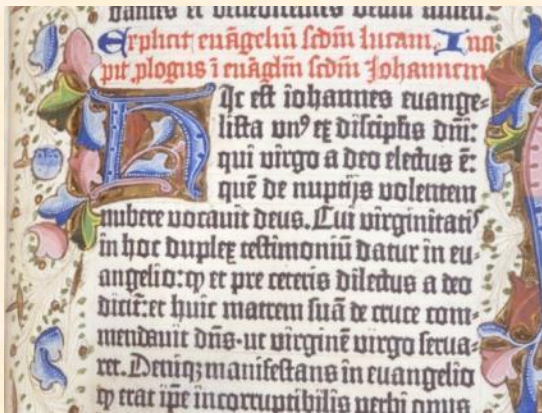 dantes et benedicentes deum amen.
Explicit euãgeliũ scd̃m lucam. Inci
pit ꝓlogus ĩ euãgliũ scd̃m Johannem
Hic est iohannes euange⸗
lista vnꝰ ex discipl̃is dñi:
qui virgo a deo electus ẽ:
quẽ de nuptijs volentem
nubere vocauit deus. Cui virginitatꝭ
in hoc duplex testimoniũ datur in eu⸗
angelio: ꝙ et pre ceteris dilectus a deo
dicit̃: et huic matrem suã de cruce com⸗
mendauit dñs · ut virginẽ virgo serua⸗
ret. Deniqꝫ manifestans in euangelio
ꝙ erat ip̃e incorruptibilis verbi opus